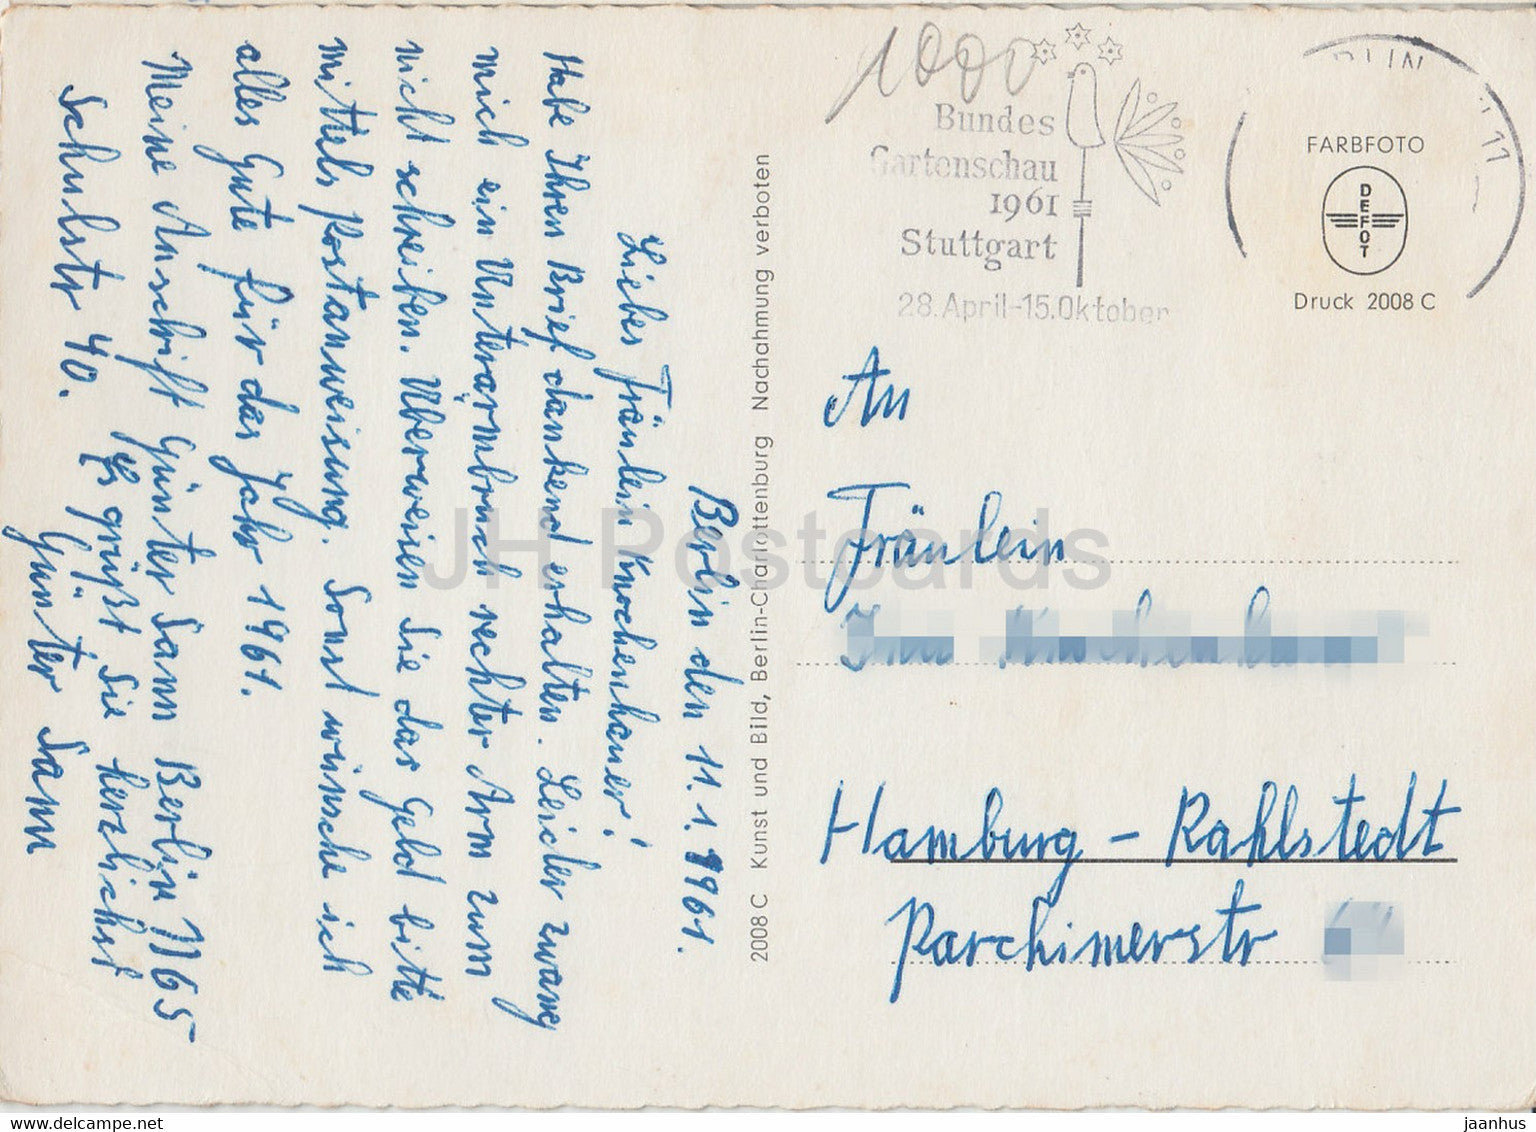 Berlin den 11.1.1961.
Liebes Fräulein Knochenhauer!
Habe Ihren Brief dankend erhalten. Leider zwang
mich ein Unterarmbruch rechter Arm zum
nicht schreiben. Überweisen Sie das Geld bitte
mittels Postanweisung. Sonst wünsche ich
alles Gute für das Jahr 1961.
Meine Anschrift Günter Sann Berlin N 65
Schulstr 40. Es grüßt Sie herzlichst
Günter Sann
2008 C Kunst und Bild, Berlin-Charlottenburg Nachahmung verboten
1000
Bundes
Gartenschau
1961
Stuttgart
28. April-15. Oktober
11
FARBFOTO
DEFOT
Druck 2008 C
An
Fräulein
Hamburg - Rahlstedt
Parchimerstr
JH Postcards
www.delcampe.net
jaanhus